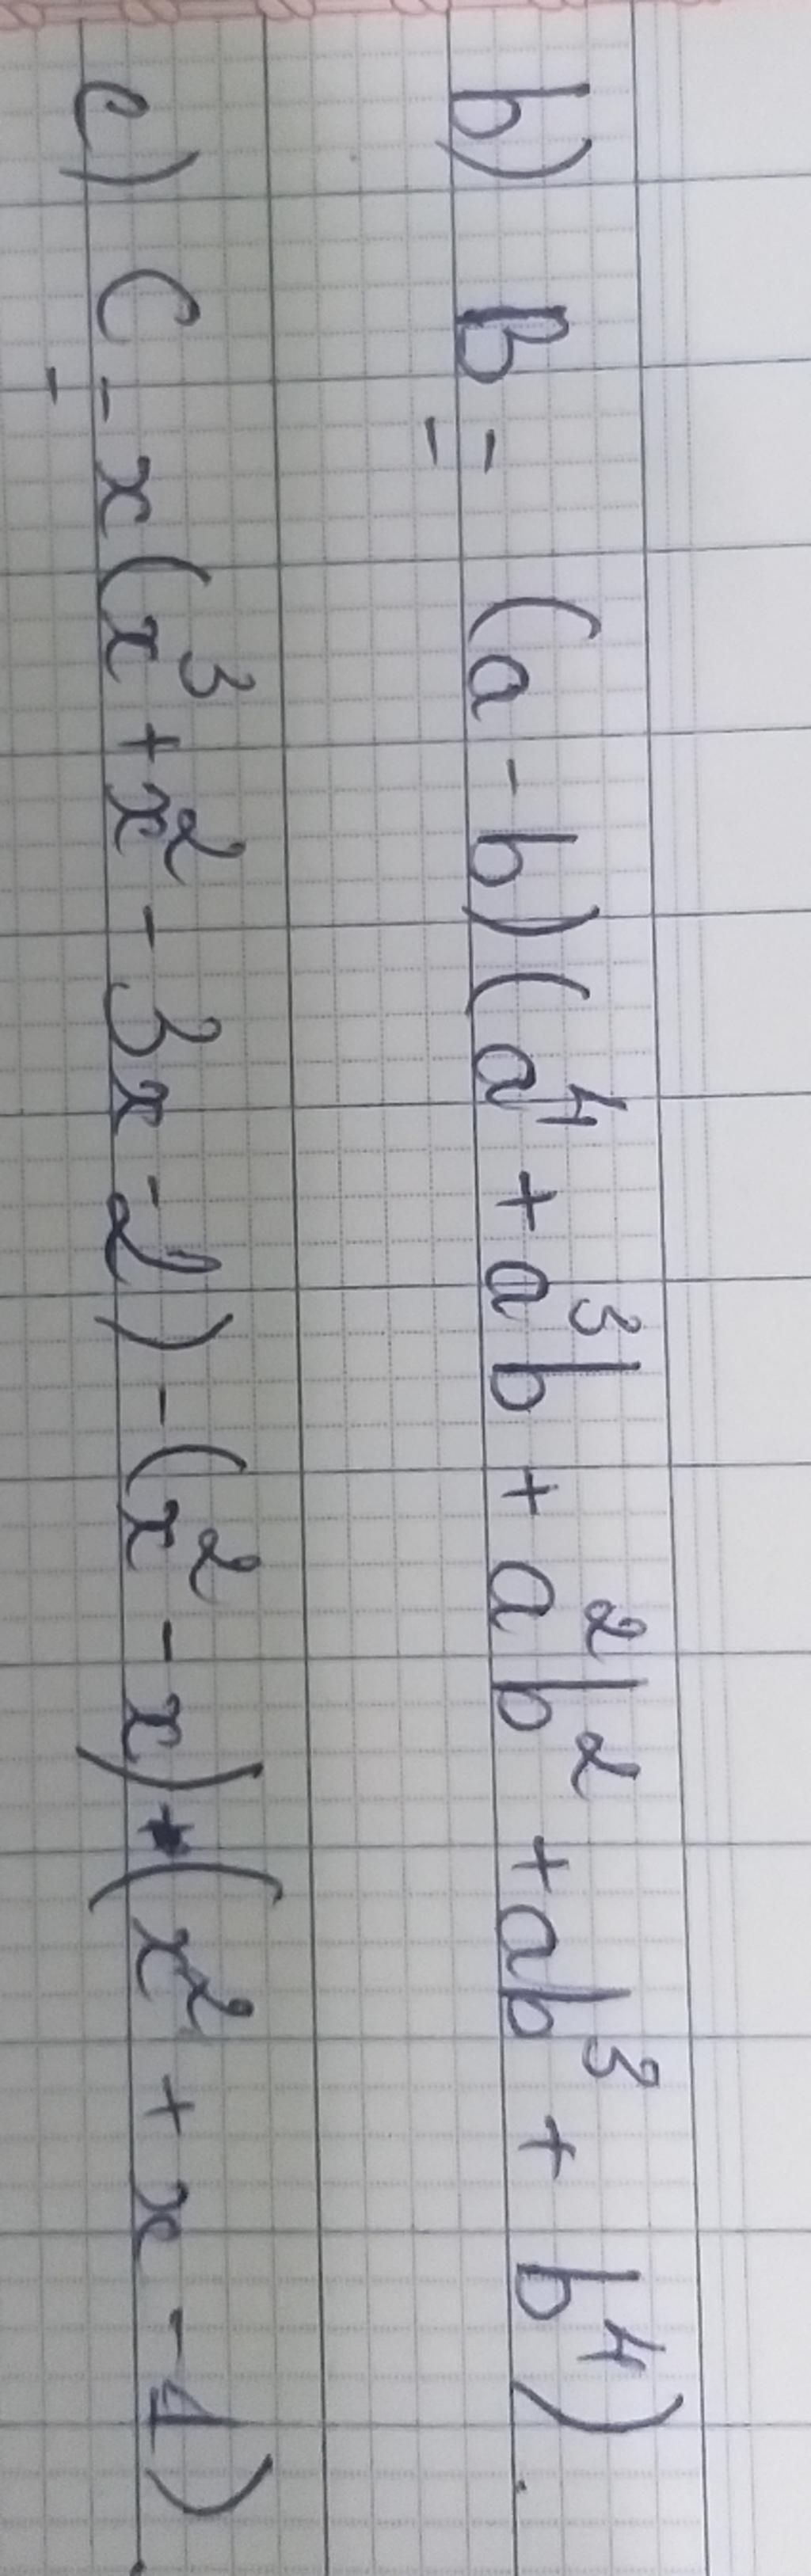 b) B = (a - b)(a⁴ + a³b + a²b² + ab³ + b⁴).
c) C = x(x³ + x² - 3x - 2) - (x² - x)(x² + x - 1).